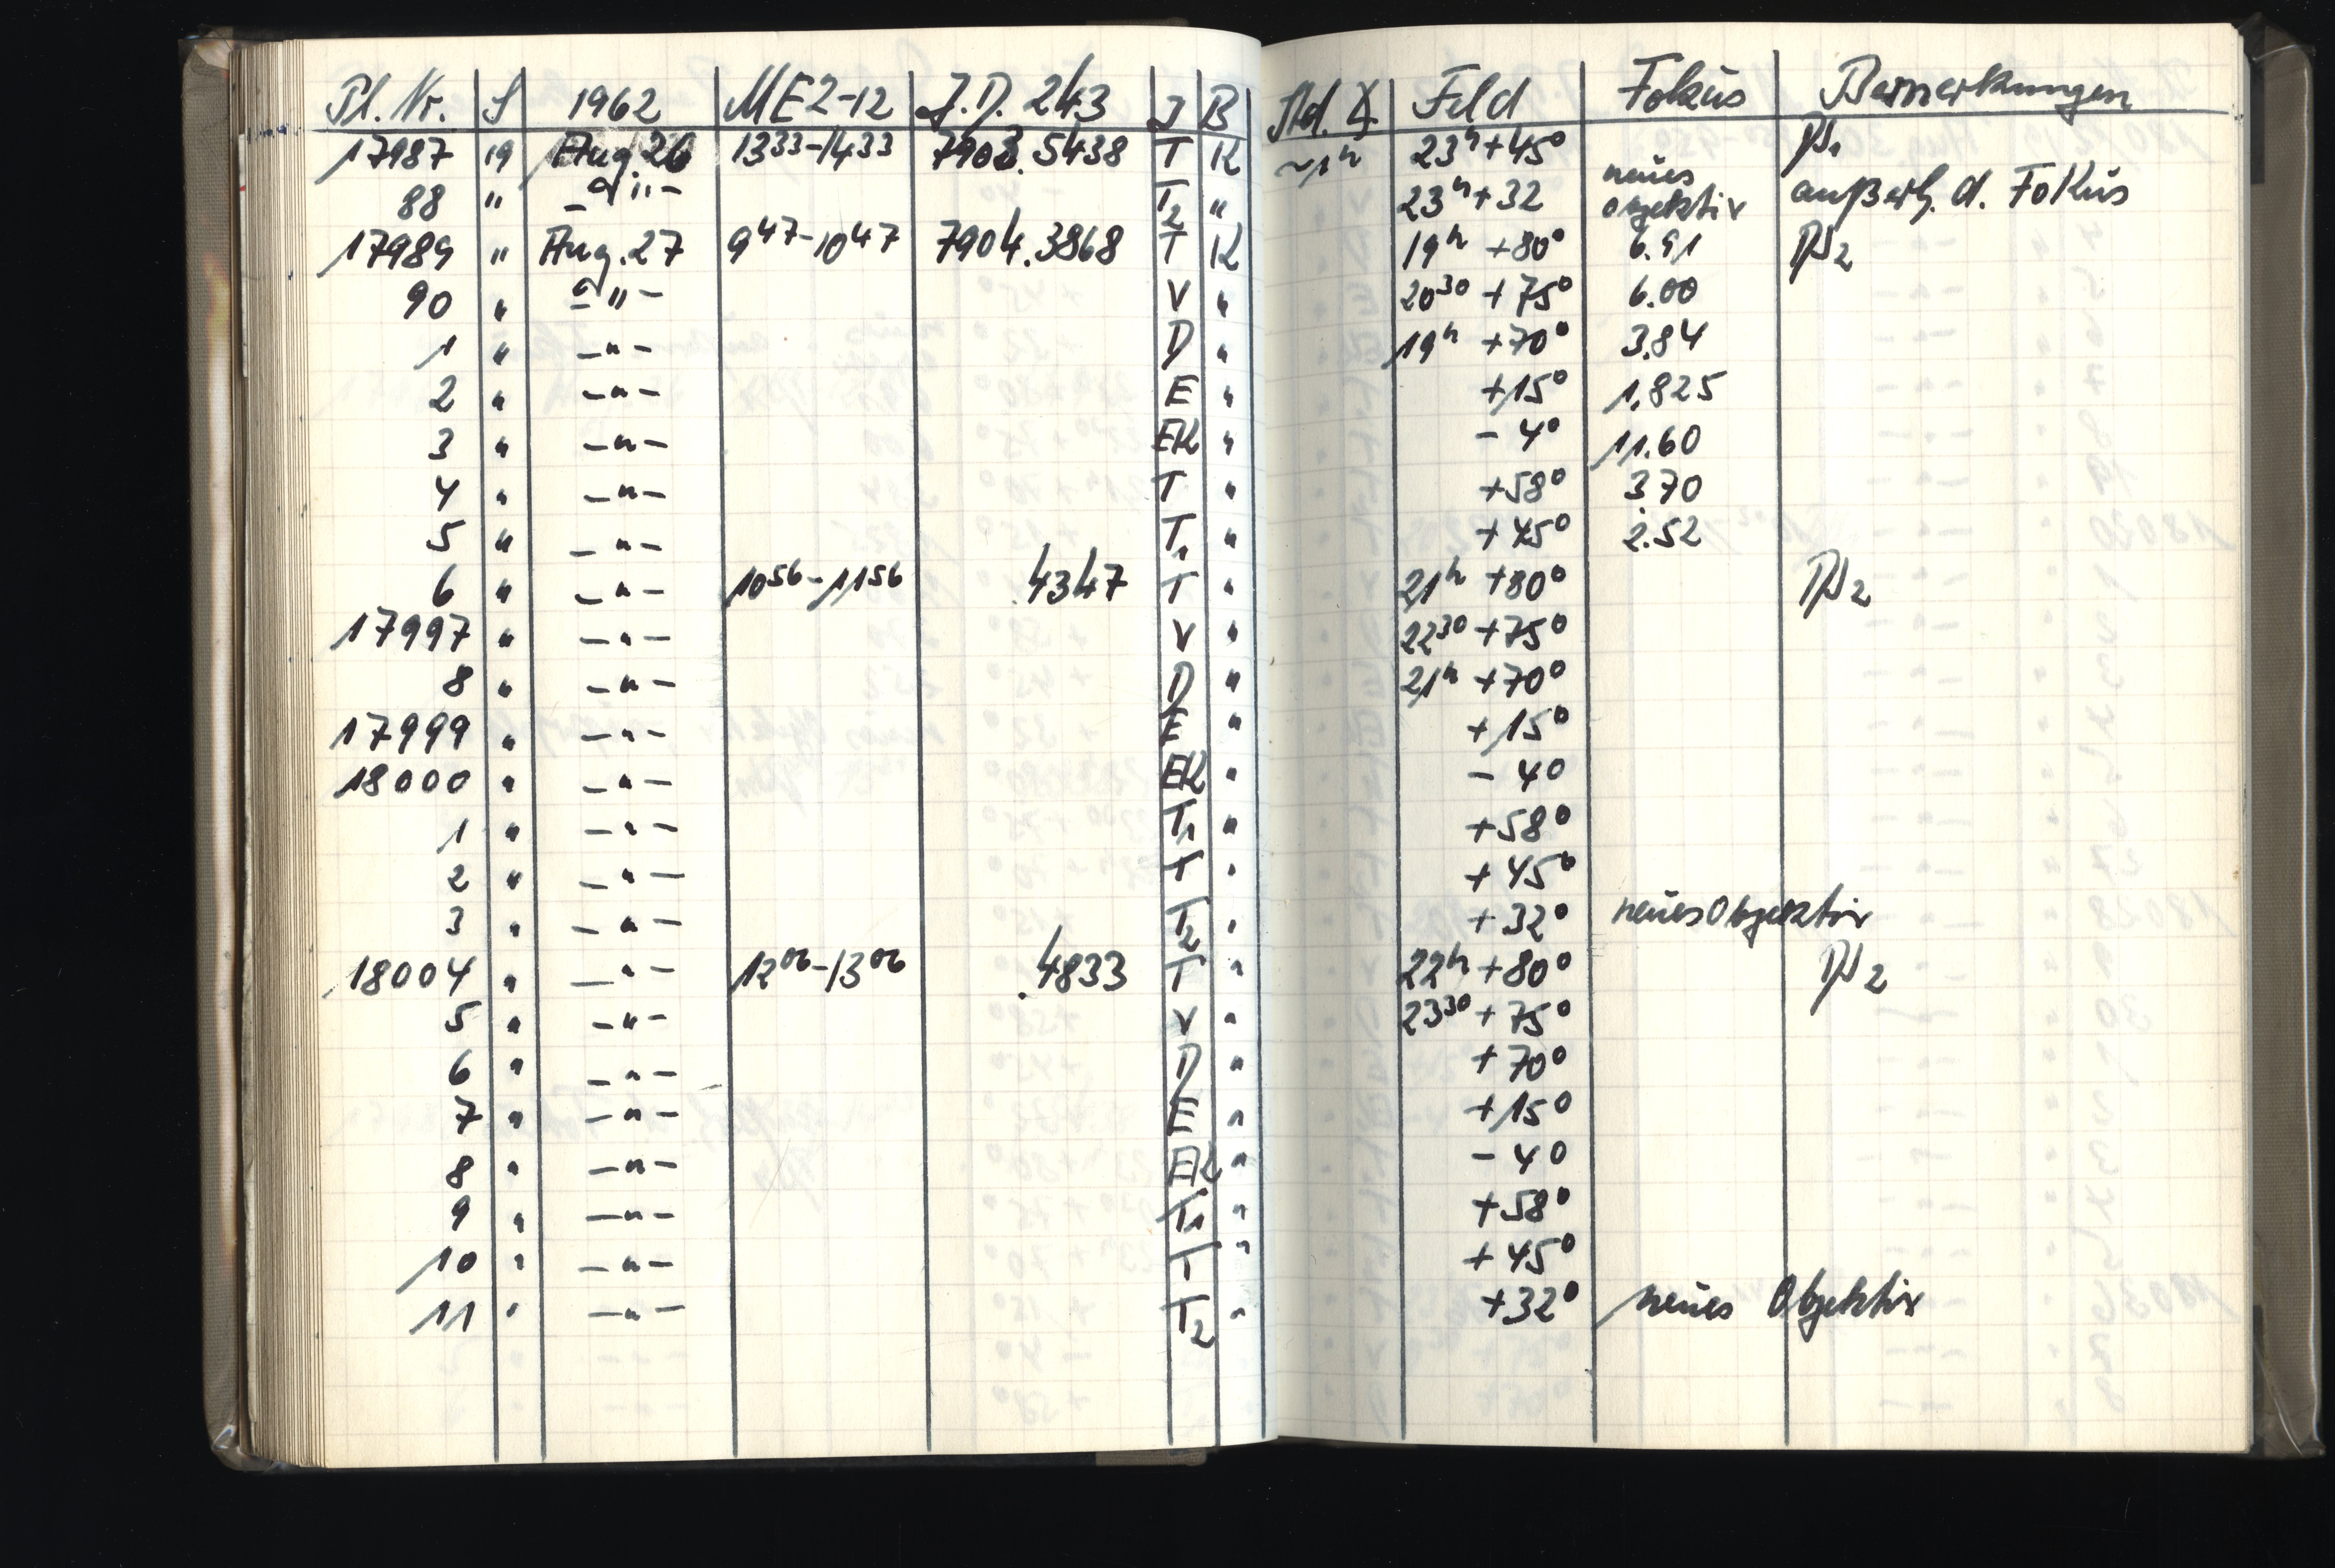 Pl. Nr. S 1962 MEZ-12 J.D. 243 J B Std. ∡ Feld Fokus Bemerkungen
17987 19 Aug 26 13³³-14³³ 7903.5438 T K ~1ʰ 23ʰ+45° P1
88 " -"- T2 " 23ʰ+32 neues Objektiv außerh. d. Fokus
17989 " Aug. 27 9⁴⁷-10⁴⁷ 7904.3868 T K 19ʰ +80° 6.91 P2
90 " -"- V " 20³⁰ +75° 6.00
1 " -"- D " 19ʰ +70° 3.84
2 " -"- E " +15° 1.825
3 " -"- EK " -4° 11.60
4 " -"- T " +58° 3.70
5 " -"- T1 " +45° 2.52
6 " -"- 10⁵⁶-11⁵⁶ .4347 T " 21ʰ +80° P2
17997 " -"- V " 22³⁰ +75°
8 " -"- D " 21ʰ +70°
17999 " -"- E " +15°
18000 " -"- EK " -4°
1 " -"- T1 " +58°
2 " -"- T " +45°
3 " -"- T2 " +32° neues Objektiv
18004 " -"- 12⁰⁶-13⁰⁶ .4833 T " 22ʰ +80° P2
5 " -"- V " 23³⁰ +75°
6 " -"- D " +70°
7 " -"- E " +15°
8 " -"- EK " -4°
9 " -"- T1 " +58°
10 " -"- T " +45°
11 " -"- T2 " +32° neues Objektiv